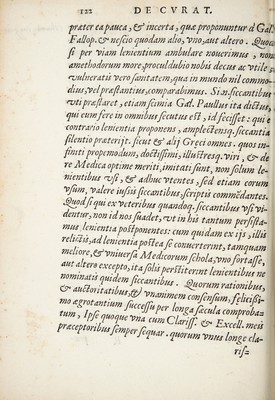 122 DE CVRAT.
præter ea pauca, & incerta, quæ proponuntur à Gal.
Fallop. & nescio quodam alio, vno, aut altero. Quòd
si per viam lenientium ambulare nouerimus, non
amethodorum more, proculdubio nobis decus ac vtile,
vulneratis vero sanitatem, qua in mundo nil commo-
dius, vel præstantius, comparabimus. Si n. siccantibus
vti præstaret, etiam scimia Gal. Paullus ita dictus,
qui eum fere in omnibus secutus est, id fecisset: qui è
contrario lenientia proponens, amplectensq. siccantia
silentio præterijt. sicut & alij Greci omnes. quos in-
finiti propemodum, doctissimi, illustresq. viri, & de
re Medica optime meriti, imitati sunt, non solum le-
nientibus vsi, & adhuc vtentes, sed etiam eorum
vsum, valere iussis siccantibus, scriptis commēdantes.
Quod si qui ex veteribus quandoq. siccantibus vsi vi-
dentur, non id nos suadet, vt in his tantum persista-
mus lenientia postponentes: cum quidam ex ijs, illis
relictis, ad lenientia postea se conuerterint, tamquam
meliora, & vniuersa Medicorum schola, vno fortasse,
aut altero excepto, ita solis perstiterint lenientibus ne
nominatis quidem siccantibus. Quorum rationibus,
& auctoritatibus, & vnanimem consensum, felicissi-
mo ægrotantium successu per longa sæcula comproba-
tum, Ipse quoque vna cum Clariss. & Excell. meis
præceptoribus semper sequar. quorum vnus longe cla-
riss.